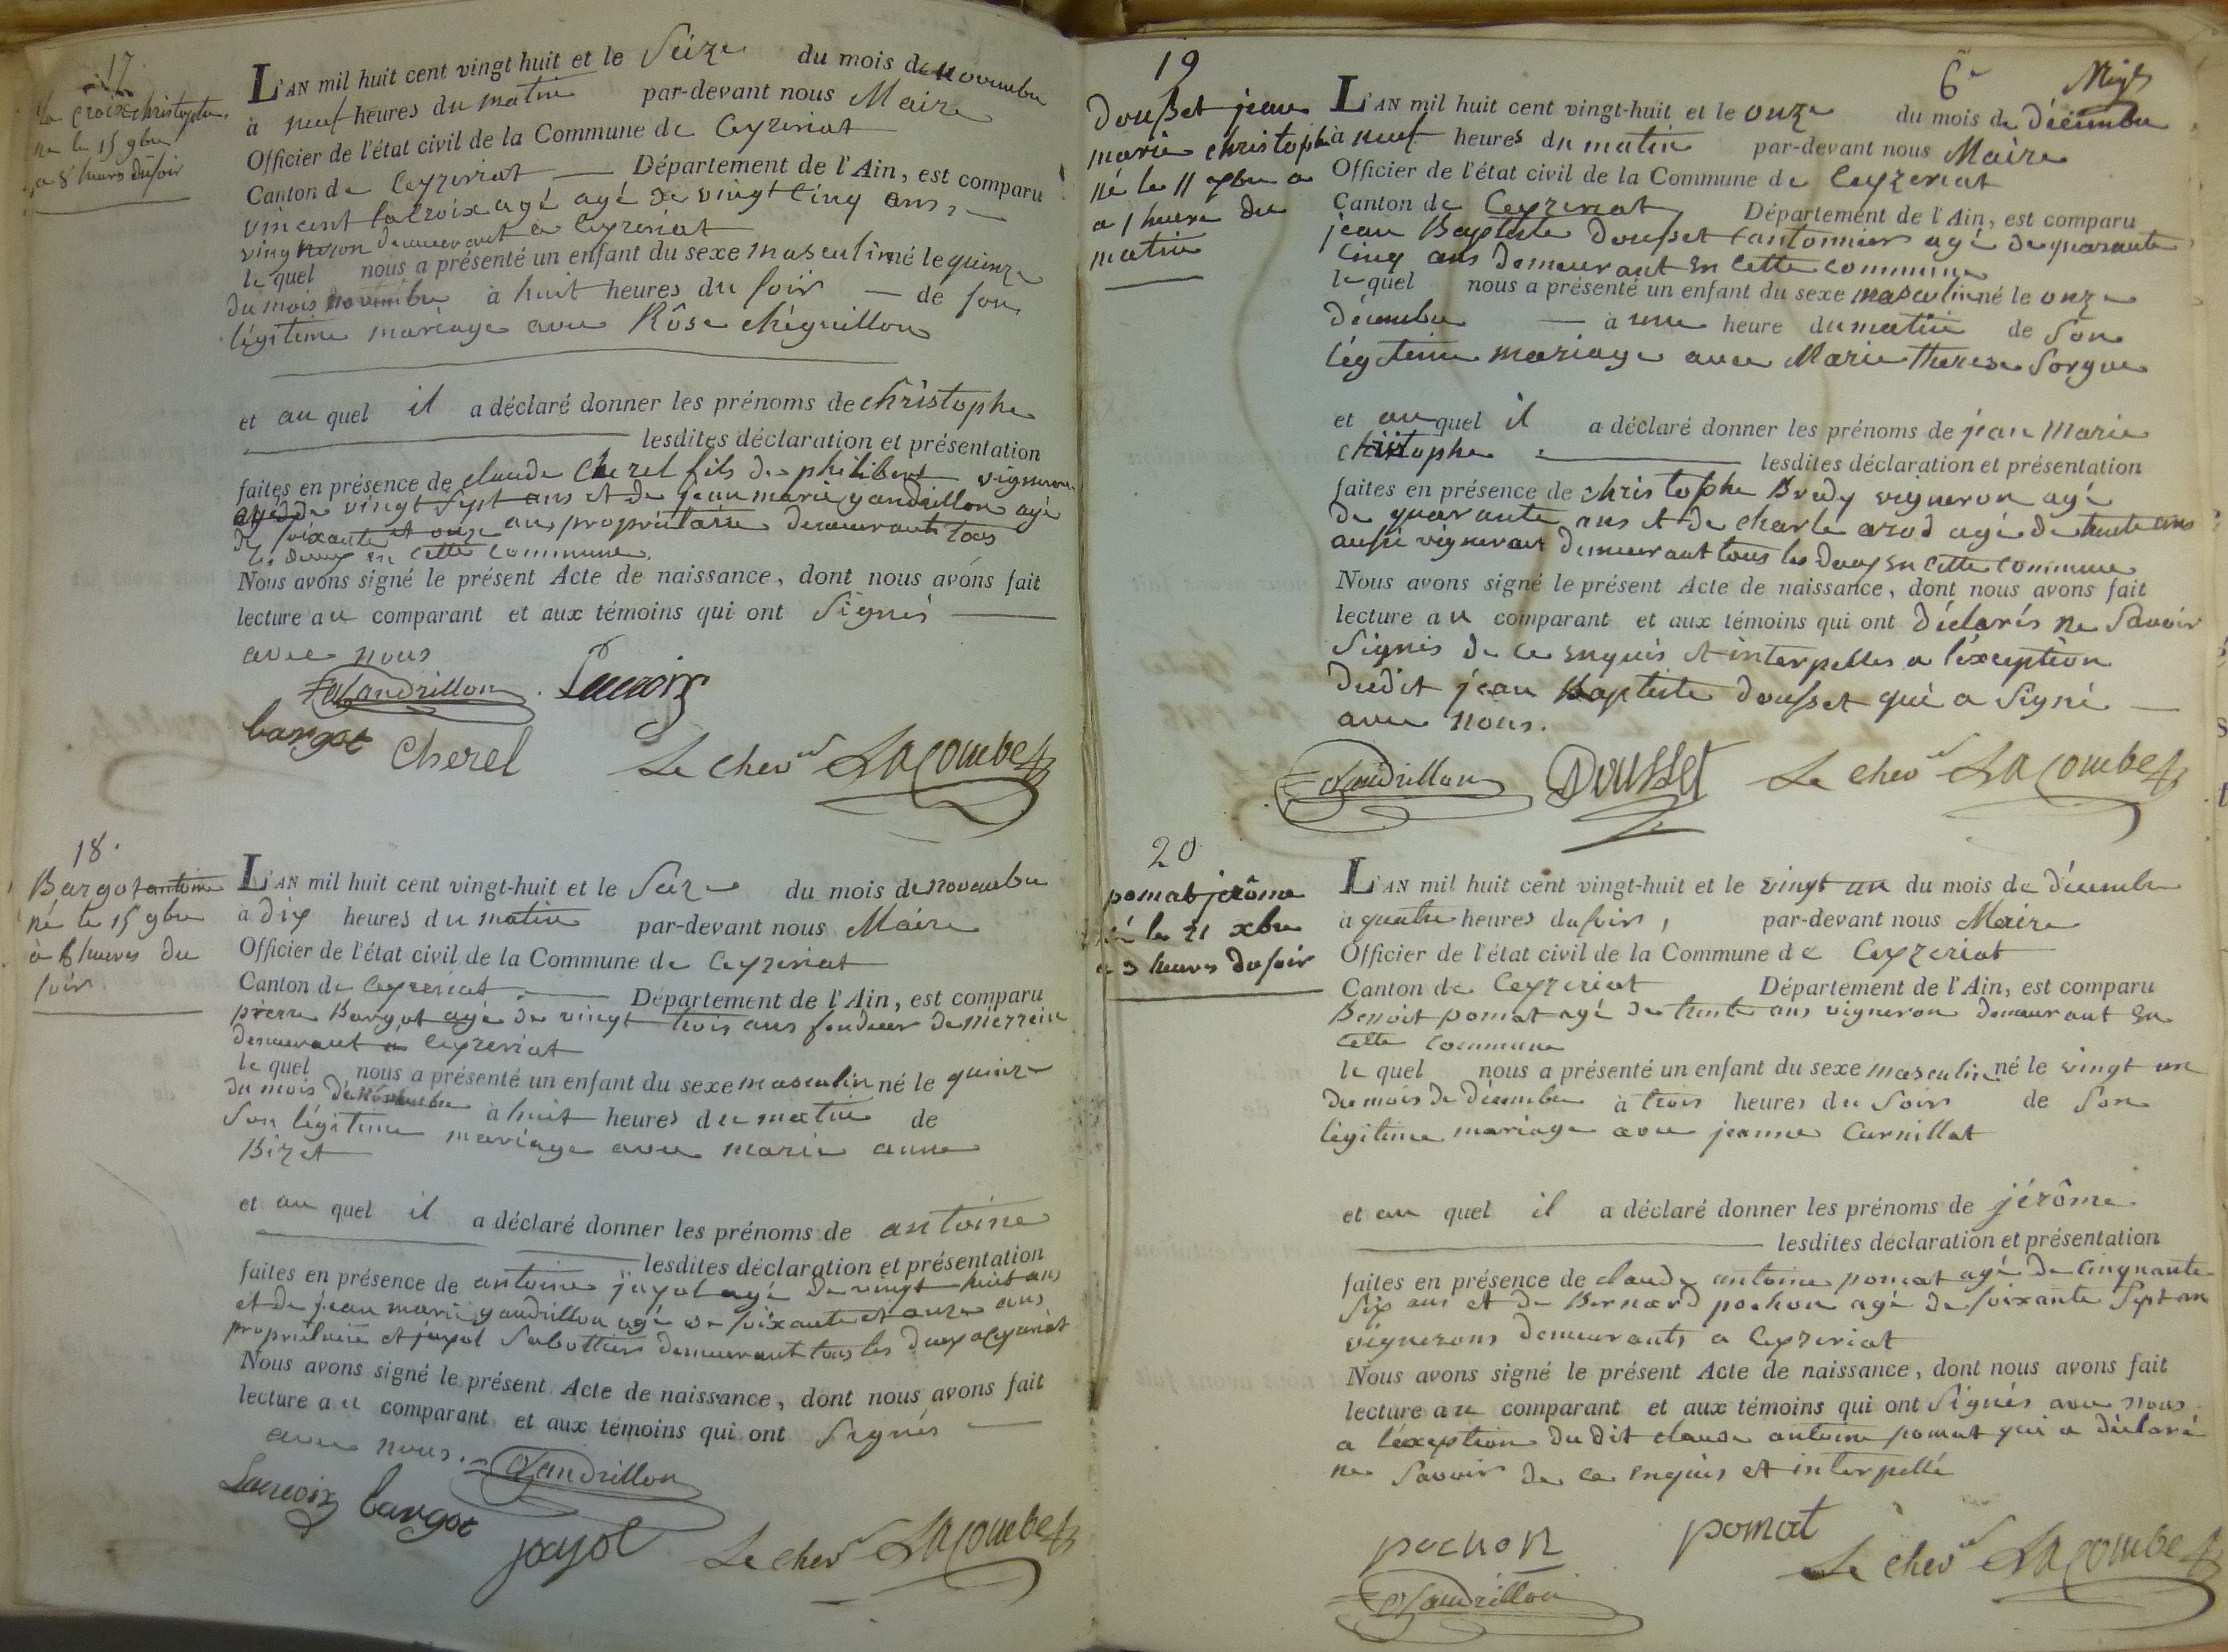 17
la croix christophe
né le 15 9bre
a 8 heures du soir
L'AN mil huit cent vingt huit et le Seize du mois de novembre
à neuf heures du matin par-devant nous Maire
Officier de l'état civil de la Commune de Ceyzeriat
Canton de Ceyzeriat Département de l'Ain, est comparu
vincent lacroix agé agé de vingt cinq ans,
demeurant a Ceyzeriat
le quel nous a présenté un enfant du sexe masculin né le quinze
du mois novembre à huit heures du soir de son
légitime mariage avec Rôse chéguillon
et au quel il a déclaré donner les prénoms de christophe
lesdites déclaration et présentation
faites en présence de claude Cherel fils de philibert vigneron
agé de vingt sept ans et de jean marie yandrillon agé
de soixante et onze ans propriétaire demeurants tous
les deux en cette commune.
Nous avons signé le présent Acte de naissance, dont nous avons fait
lecture au comparant et aux témoins qui ont Signés
avec nous
Yandrillon Lacroix
bargot Cherel Le chevr LACombe
18.
Bargot antoine
né le 15 9bre
à 8 heures du
soir
L'AN mil huit cent vingt-huit et le Seize du mois de novembre
à dix heures du matin par-devant nous Maire
Officier de l'état civil de la Commune de Ceyzeriat
Canton de Ceyzeriat Département de l'Ain, est comparu
pierre Bargot agé de vingt trois ans fendeur de mérrein
demeurant a Ceyzeriat
le quel nous a présenté un enfant du sexe masculin né le quinze
du mois de Novembre à huit heures du matin de
Son légitime mariage avec marie anne
Bizet
et au quel il a déclaré donner les prénoms de antoine
lesdites déclaration et présentation
faites en présence de antoine jayol agé de vingt huit ans
et de jean marie yandrillon agé de soixante et onze ans
propriétaire et jayol Sabottier demeurant tous les deux a Ceyzeriat
Nous avons signé le présent Acte de naissance, dont nous avons fait
lecture au comparant et aux témoins qui ont Signés
avec nous. Yandrillon
Lacroix bargot
jayol Le chevr LACombe
19 6e
Dousset jean
marie christophe
né le 11 xbre a
a 1 heure du
matin
L'AN mil huit cent vingt-huit et le onze du mois de décembre
à neuf heures du matin par-devant nous Maire
Officier de l'état civil de la Commune de Ceyzeriat
Canton de Ceyzeriat Département de l'Ain, est comparu
jean Baptiste Dousset cantonnier agé de quarante
cinq ans demeurant en cette commune
le quel nous a présenté un enfant du sexe masculin né le onze
décembre à une heure du matin de Son
légitime mariage avec Marie therese Sorgue
et au quel il a déclaré donner les prénoms de jean Marie
christophe lesdites déclaration et présentation
faites en présence de christophe Bredy vigneron agé
de quarante ans et de charle arod agé de trente ans
aussi vigneron demeurant tous les deux en cette commune
Nous avons signé le présent Acte de naissance, dont nous avons fait
lecture au comparant et aux témoins qui ont déclarés ne Savoir
Signés de ce enquis et interpelles a l'éxception
dudit jean Baptiste dousset qui a Signé
avec nous.
Yandrillon Dousset Le chevr LACombe
20
pomat jerôme
né le 21 xbre
a 3 heures du soir
L'AN mil huit cent vingt-huit et le vingt un du mois de décembre
à quatre heures du soir, par-devant nous Maire
Officier de l'état civil de la Commune de Ceyzeriat
Canton de Ceyzeriat Département de l'Ain, est comparu
Benoit pomat agé de trente ans vigneron demeurant en
cette commune
le quel nous a présenté un enfant du sexe masculin né le vingt un
du mois de décembre à trois heures du Soir de Son
légitime mariage avec jeanne Curnillat
et au quel il a déclaré donner les prénoms de jérôme
lesdites déclaration et présentation
faites en présence de claude antoine pomat agé de cinquante
Six ans et de Bernard pochon agé de soixante Sept an
vignerons demeurants a Ceyzeriat
Nous avons signé le présent Acte de naissance, dont nous avons fait
lecture au comparant et aux témoins qui ont Signés avec nous
a l'éxception du dit claude antoine pomat qui a déclaré
ne Savoir de ce enquis et interpellé
pochon pomat Le chevr LACombe
Yandrillon